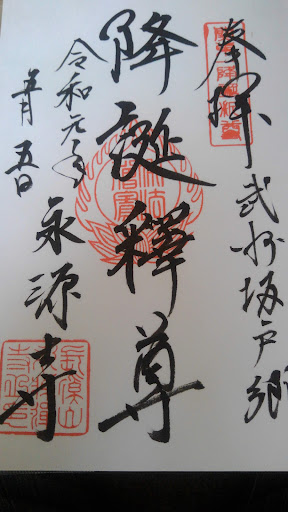 奉拝 武州坂戸郷
降誕釋尊
令和元年
五月五日
永源寺